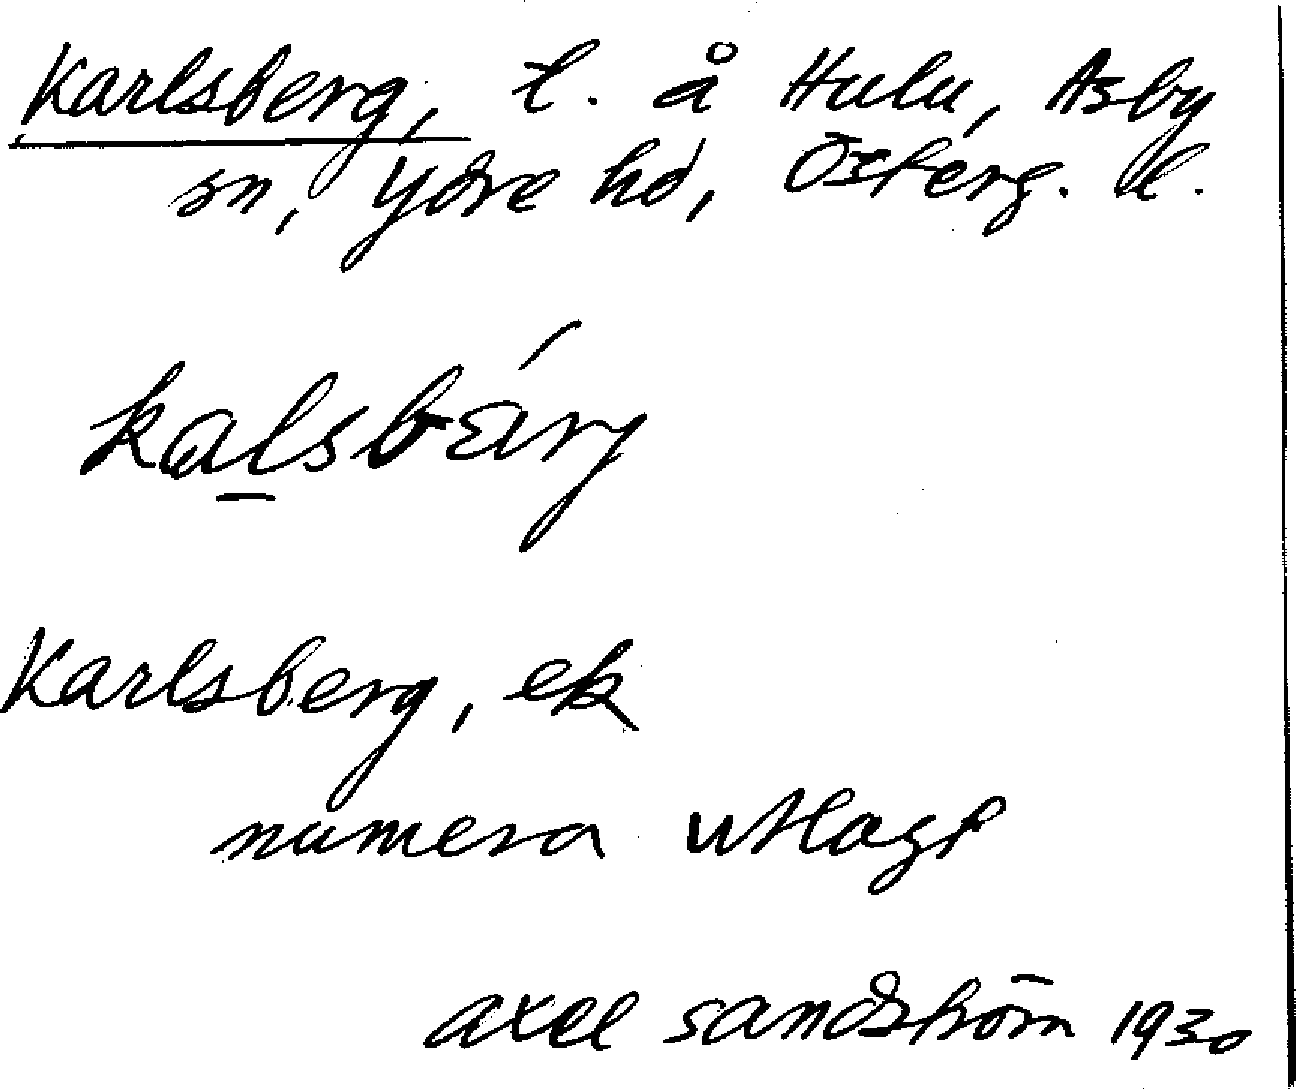 Karlsberg, t. å Hulu, Asby
sn, Ydre hd, Österg. l.
kalsbärj
Karlsberg, ek
numera utlagt
axel sandström 1930